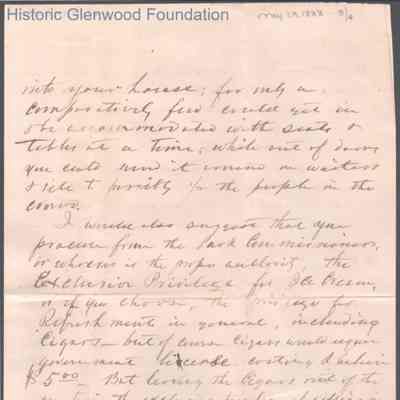 Historic Glenwood Foundation
May 29, 1888 3/4
into your house; for only a
compositively few could get in
& be accommodated with seats &
tables at a time; while out of doors
you could send it around on waiters
& sell to possibly 1/2 the people in the
crowd.
I would also suggest that you
procure from the Park Commissioners,
or whoever is the proper authority, the
Exclusive Privilege for Ice Cream,
or if you choose, the privilege for
Refreshments in general, including
Cigars — but of course Cigars would require
government license costing
$5.00 But leaving the Cigars out of the